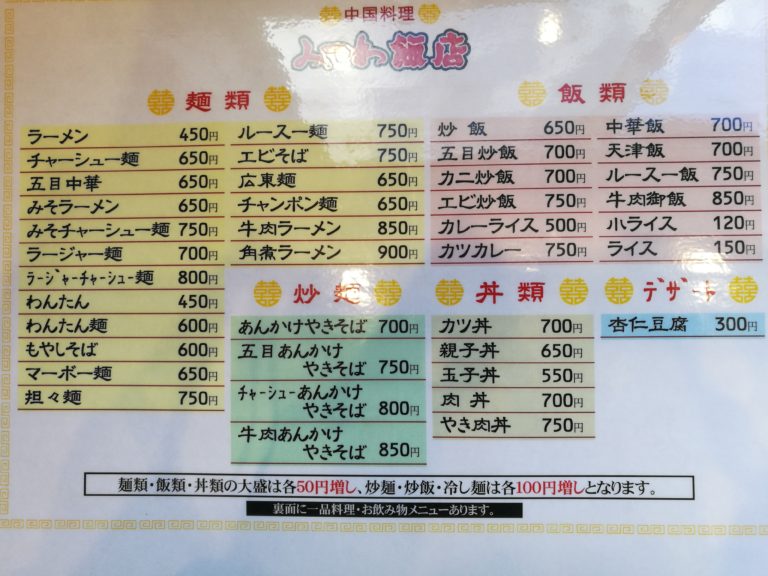 中国料理
みつわ飯店
麺類
ラーメン 450円
チャーシュー麺 650円
五目中華 650円
みそラーメン 650円
みそチャーシュー麺 750円
ラージャー麺 700円
ラージャーチャーシュー麺 800円
わんたん 450円
わんたん麺 600円
もやしそば 600円
マーボー麺 650円
担々麺 750円
ルースー麺 750円
エビそば 750円
広東麺 650円
チャンポン麺 650円
牛肉ラーメン 850円
角煮ラーメン 900円
飯類
炒飯 650円
五目炒飯 700円
カニ炒飯 700円
エビ炒飯 750円
カレーライス 500円
カツカレー 750円
中華飯 700円
天津飯 700円
ルースー飯 750円
牛肉御飯 850円
小ライス 120円
ライス 150円
炒麺
あんかけやきそば 700円
五目あんかけ
やきそば 750円
チャーシューあんかけ
やきそば 800円
牛肉あんかけ
やきそば 850円
丼類
カツ丼 700円
親子丼 650円
玉子丼 550円
肉丼 700円
やき肉丼 750円
デザート
杏仁豆腐 300円
麺類・飯類・丼類の大盛は各50円増し、炒麺・炒飯・冷し麺は各100円増しとなります。
裏面に一品料理・お飲み物メニューあります。